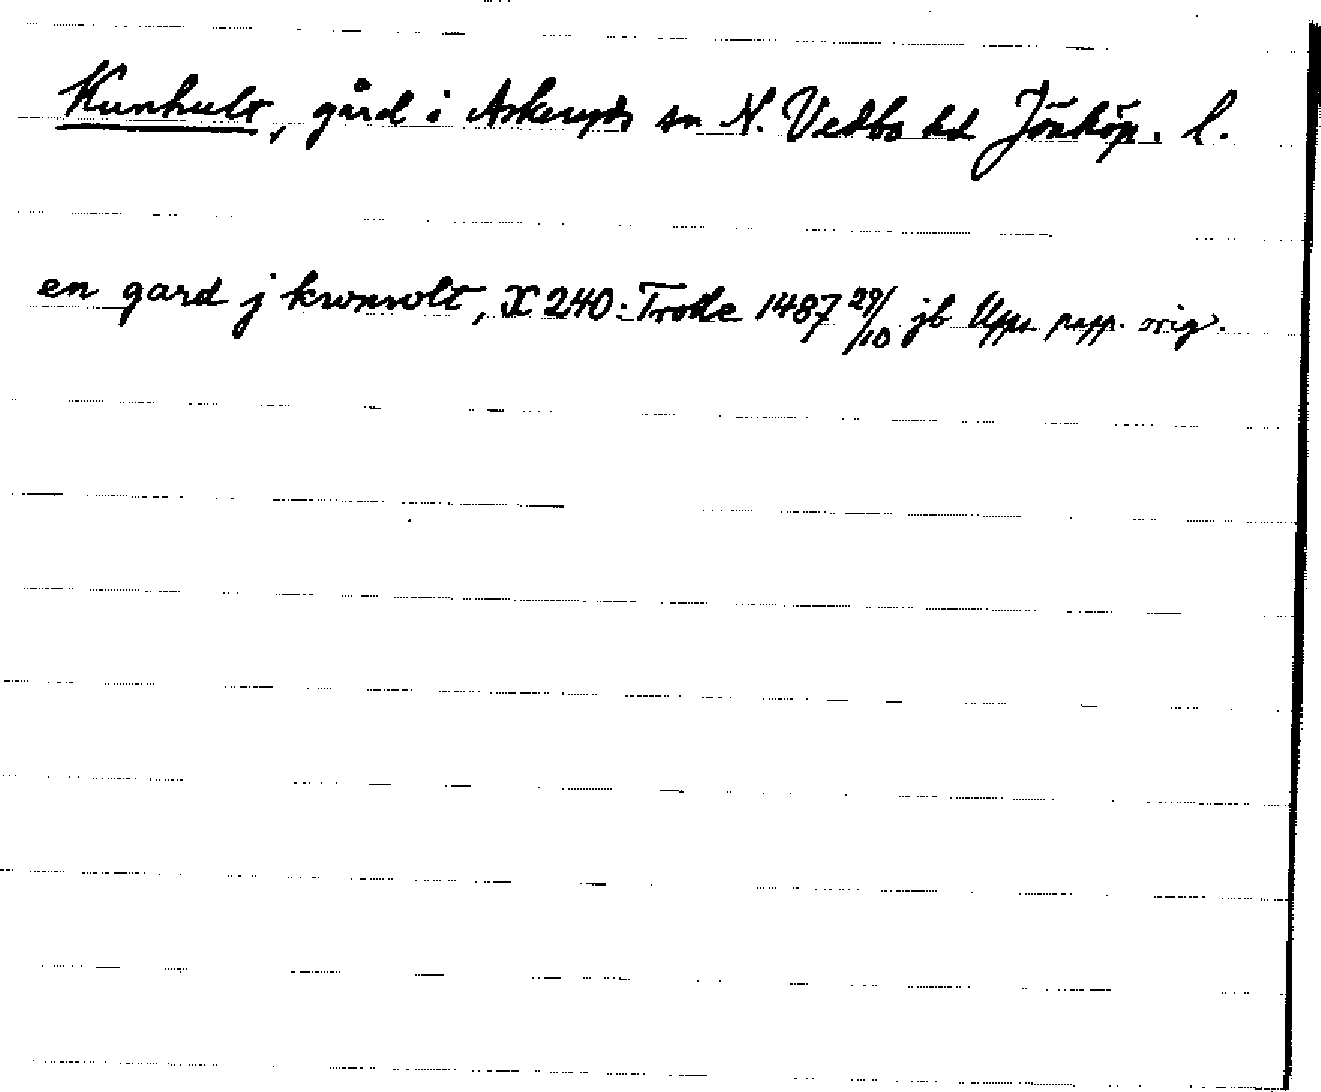 Kunhult, gård i Askeryds sn N. Vedbo hd Jönköp. l.
en gard j kwnwolt, X 240: Trolle 1487 29/10 jb Upps papp. orig.